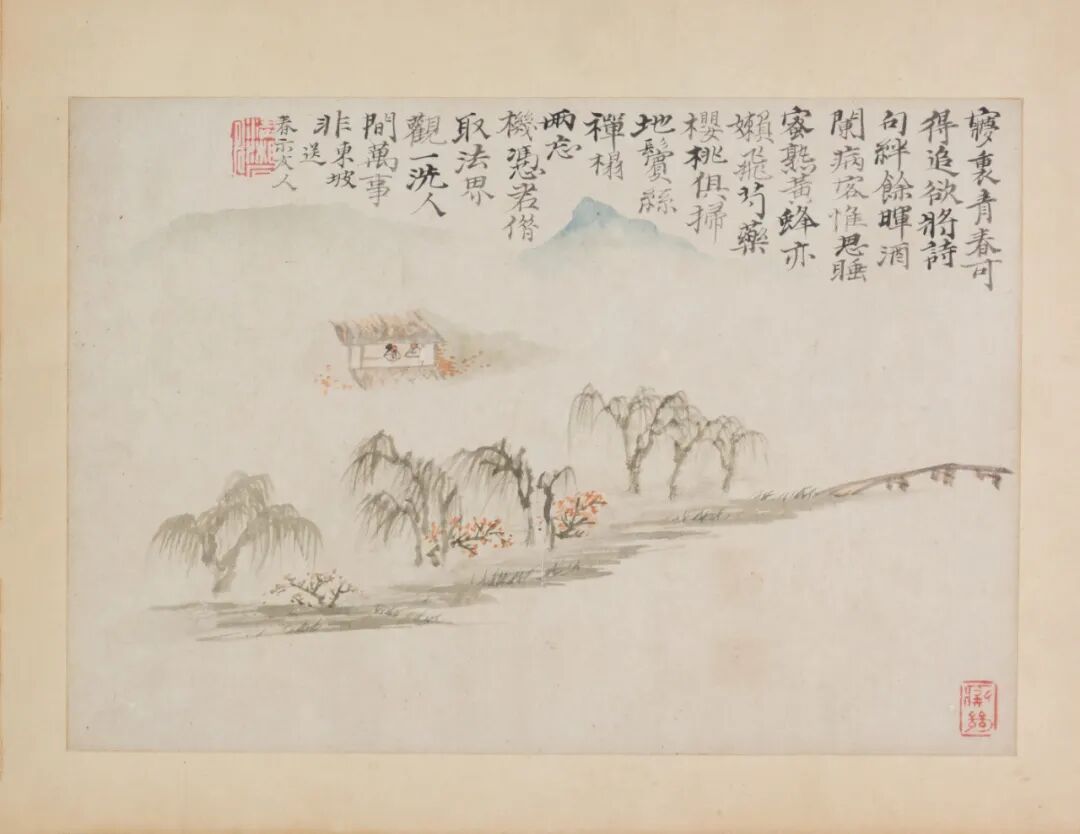 㝱裏青春可
得追欲將詩
句絆餘暉酒
闌病客惟思睡
蜜熟黃蜂亦
嬾飛芍藥
櫻桃俱掃
地鬢絲
禪榻
兩忘
機憑君借
取法界
觀一洗人
間萬事
非東坡
送
春
人